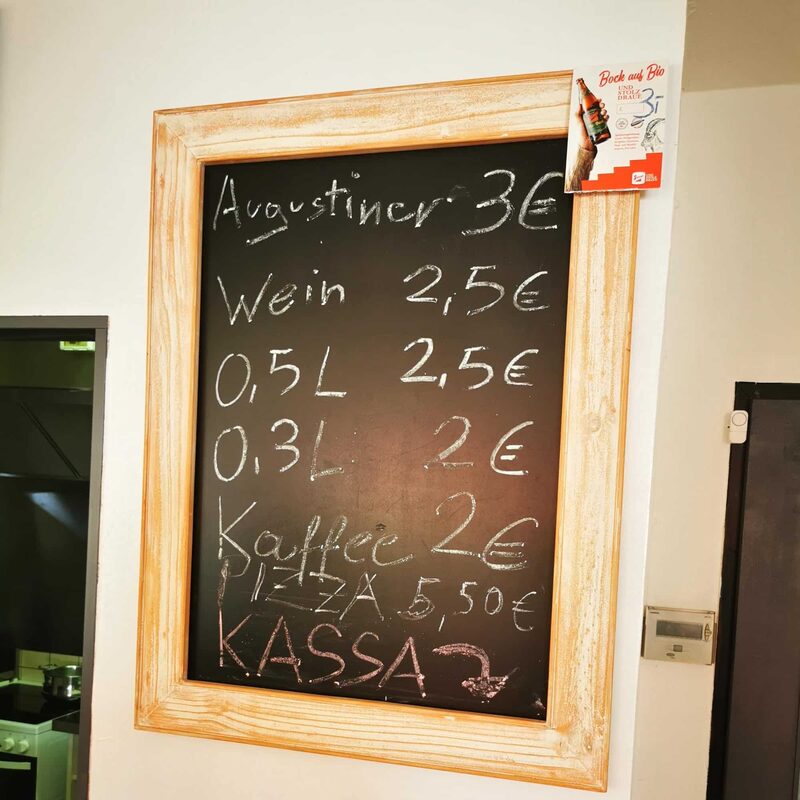 Bock auf Bio
UND
STOLZ
DRAUF
3,-
Augustiner 3€
Wein 2,5€
0,5L 2,5€
0,3L 2€
Kaffee 2€
PIZZA 5,50€
KASSA